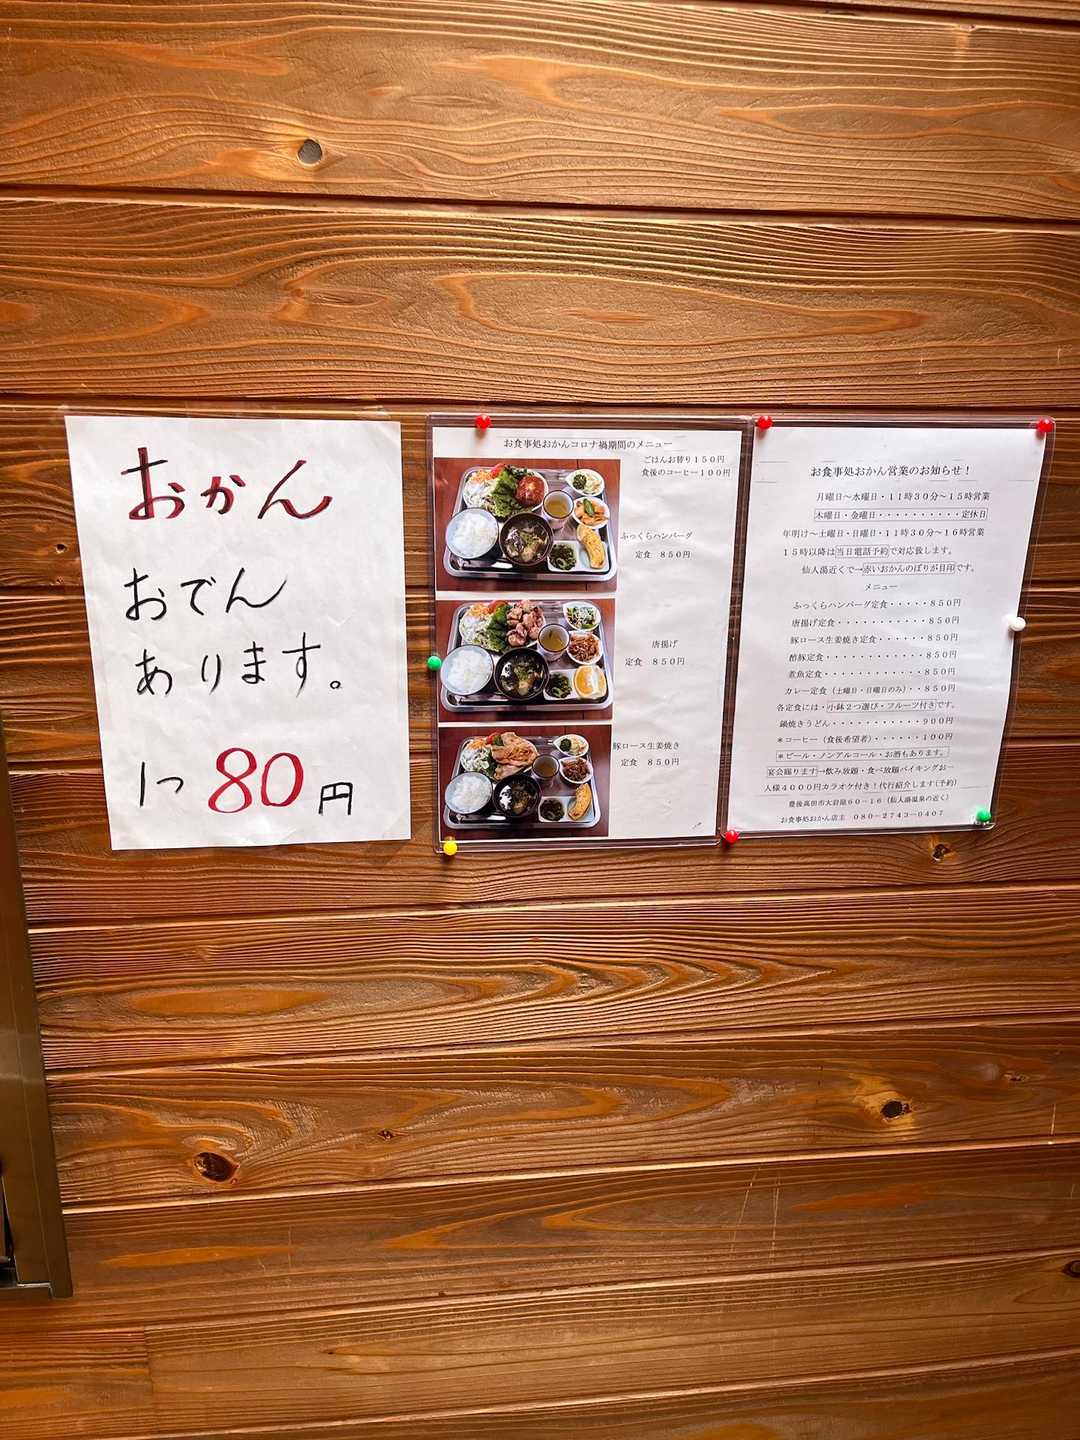 おかん
おでん
あります。
1つ 80円
お食事処おかんコロナ禍期間のメニュー
ごはんお替り150円
食後のコーヒー100円
ふっくらハンバーグ
定食 850円
唐揚げ
定食 850円
豚ロース生姜焼き
定食 850円
お食事処おかん営業のお知らせ！
月曜日～水曜日・11時30分～15時営業
木曜日・金曜日・・・・・・・・・・定休日
年明け～土曜日・日曜日・11時30分～16時営業
15時以降は当日電話予約で対応致します。
仙人湯近くで→赤いおかんのぼりが目印です。
メニュー
ふっくらハンバーグ定食・・・・・850円
唐揚げ定食・・・・・・・・・・・850円
豚ロース生姜焼き定食・・・・・850円
酢豚定食・・・・・・・・・・・・850円
煮魚定食・・・・・・・・・・・・850円
カレー定食（土曜日・日曜日のみ）・・850円
各定食には・小鉢2つ選び・フルーツ付きです。
鍋焼きうどん・・・・・・・・・・900円
＊コーヒー（食後希望者）・・・・・・100円
＊ビール・ノンアルコール・お酒もあります。
宴会賜ります→飲み放題・食べ放題バイキングお一
人様4000円カラオケ付き！代行紹介します（予約）
豊後高田市大岩屋60－16（仙人湯温泉の近く）
お食事処おかん店主 080－2743－0407